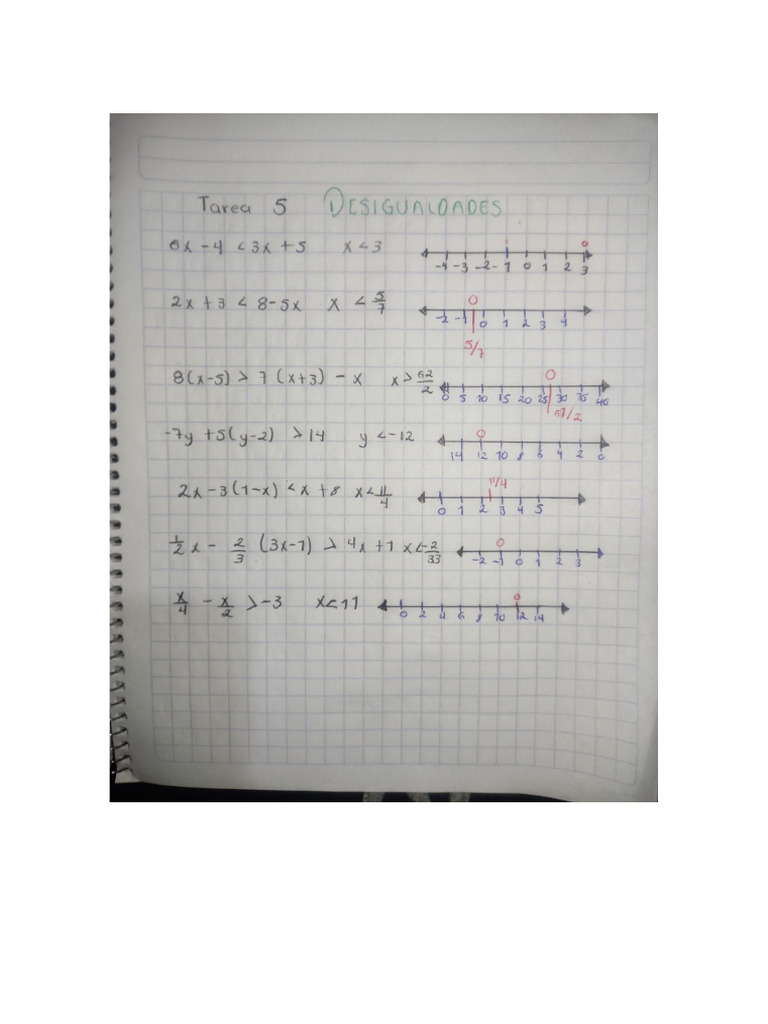 Tarea 5 DESIGUALDADES
6x - 4 < 3x + 5 x < 3
-4 -3 -2 -1 0 1 2 3
2x + 3 < 8 - 5x x < 5/7
-2 -1 0 1 2 3 4
5/7
8(x-5) > 7(x+3) - x x > 62/2
0 5 10 15 20 25 30 35 40
-7y + 5(y-2) > 14 y < -12
14 12 10 8 6 4 2 0
2x - 3(1-x) < x + 8 x < 11/4
11/4
0 1 2 3 4 5
1/2 x - 2/3 (3x-1) > 4x + 1 x < -2/33
-2 -1 0 1 2 3
x/4 - x/2 > -3 x < 11
0 2 4 6 8 10 12 14